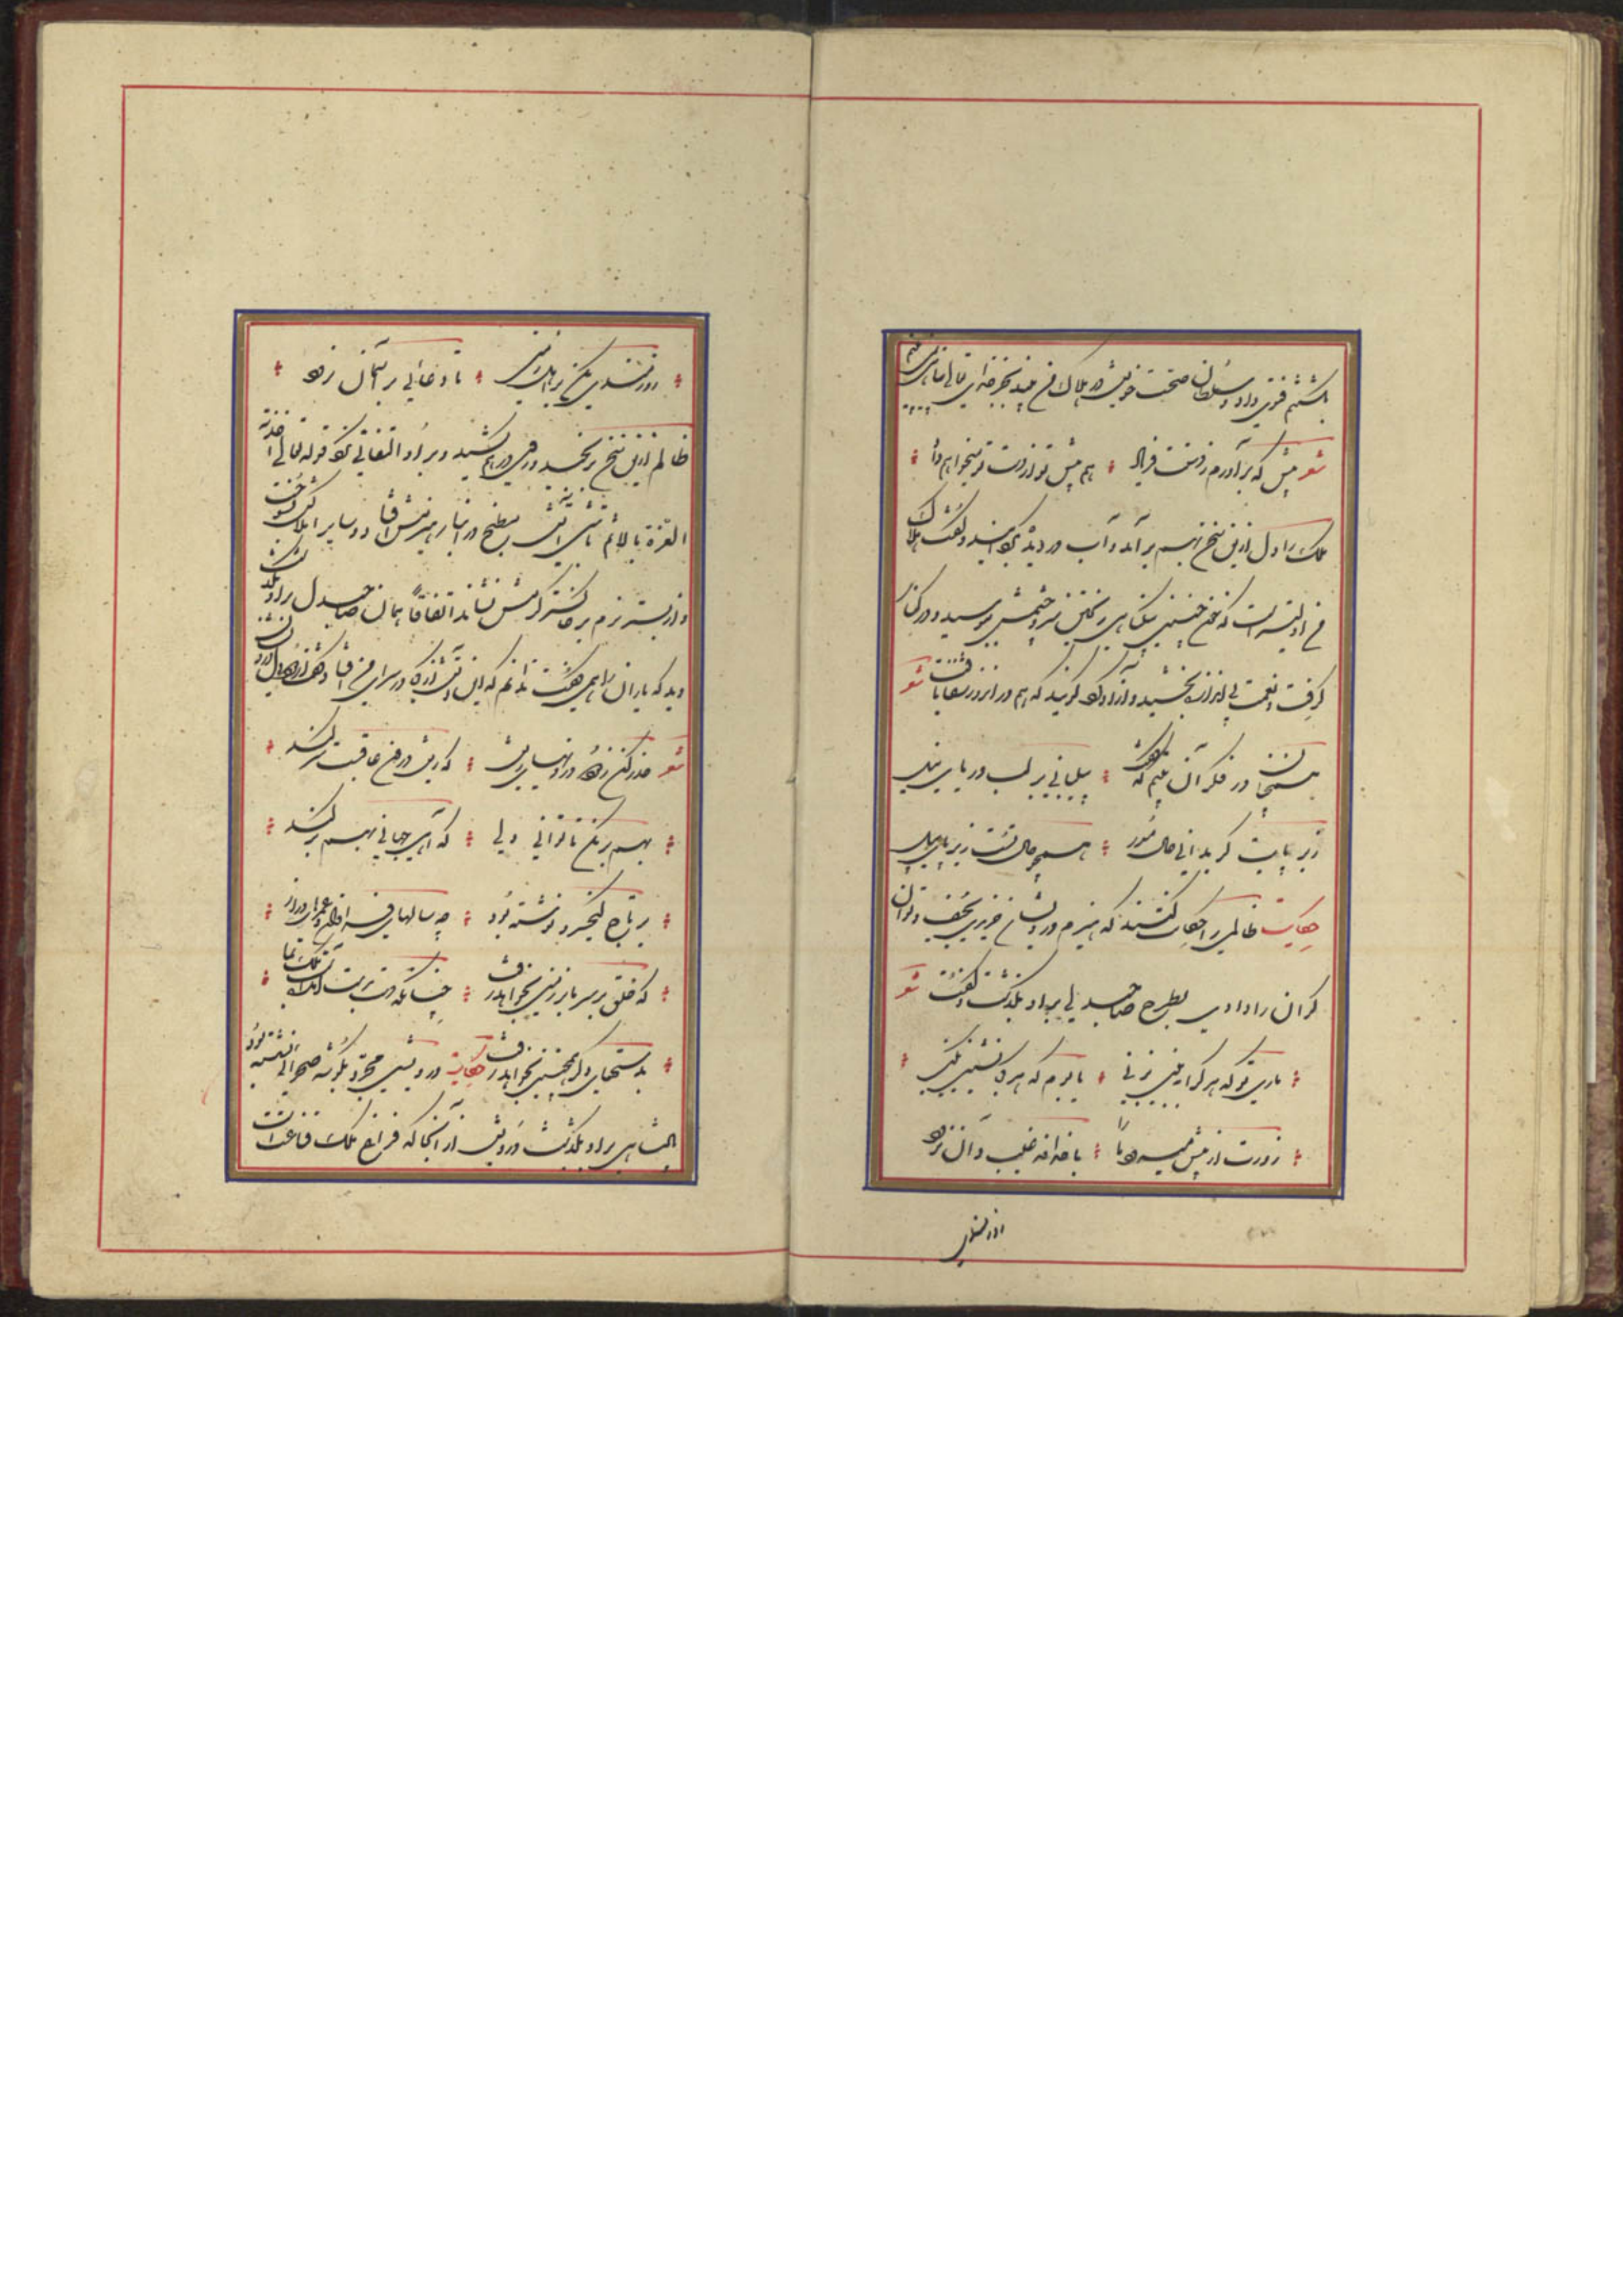 بکشتنم فتوی داد و سلطان صحت خویش در هلاک من بیند بجز خدای تعالی پناهی نمی بینم
شعر پیش که برآورم ز دستت فریاد هم پیش تو از دست تو میخواهم داد
ملک را دل ازین سخن بهم برآمد و آب در دیده بگردانید و گفت هلاک
من اولیتر است که خون چنین بیگناهی ریختن سر و چشمش ببوسید و در کنار
گرفت و نعمت بی اندازه بخشید و آزاد کرد گویند که هم در آنروز شفا یافت شعر
همچنان در فکر آن بیتم که گفت پیلبانی بر لب دریای نیل
زیر پایت گر بدانی حال مور همچو حال تست زیر پای پیل
حکایت ظالمی را حکایت کنند که هیزم درویشان خریدی بحیف و توانگران
را دادی بطرح صاحبدلی برو بگذشت و گفت شعر
ماری تو که هر کرا ببینی بزنی یا بوم که هر کجا نشینی بکنی
زورت از پیش میرود با ما با خداوند غیب دان نرود
زورمندی
زورمندی مکن بر اهل زمین تا دعائی بر آسمان نرود
ظالم ازین سخن برنجید و روی درهم کشید و برو التفاتی نکرد قوله تعالی اخذته
العزة بالاثم تا شبی آتش مطبخ در انبار هیزمش افتاد و سایر املاکش بسوخت
و از بستر نرم بر خاکستر گرمش نشاند اتفاقاً همان صاحبدل برو بگذشت
دید که با یاران همی گفت ندانم که این آتش از کجا در سرای من افتاد گفت از دود دل درویشان
شعر حذر کن ز درد درونهای ریش که ریش درون عاقبت سر کند
بهم بر مکن تا توانی دلی که آهی جهانی بهم بر کند
بر تاج کیخسرو نوشته بود چه سالهای فراوان و عمرهای دراز
که خلق بر سر ما بر زمین بخواهد رفت چنانکه دست بدست آمدست ملک بما
بدستهای دگر همچنین بخواهد رفت حکایت درویشی مجرد بگوشه صحرائی نشسته بود
پادشاهی برو بگذشت درویش از آنجا که فراغ ملک قناعت است